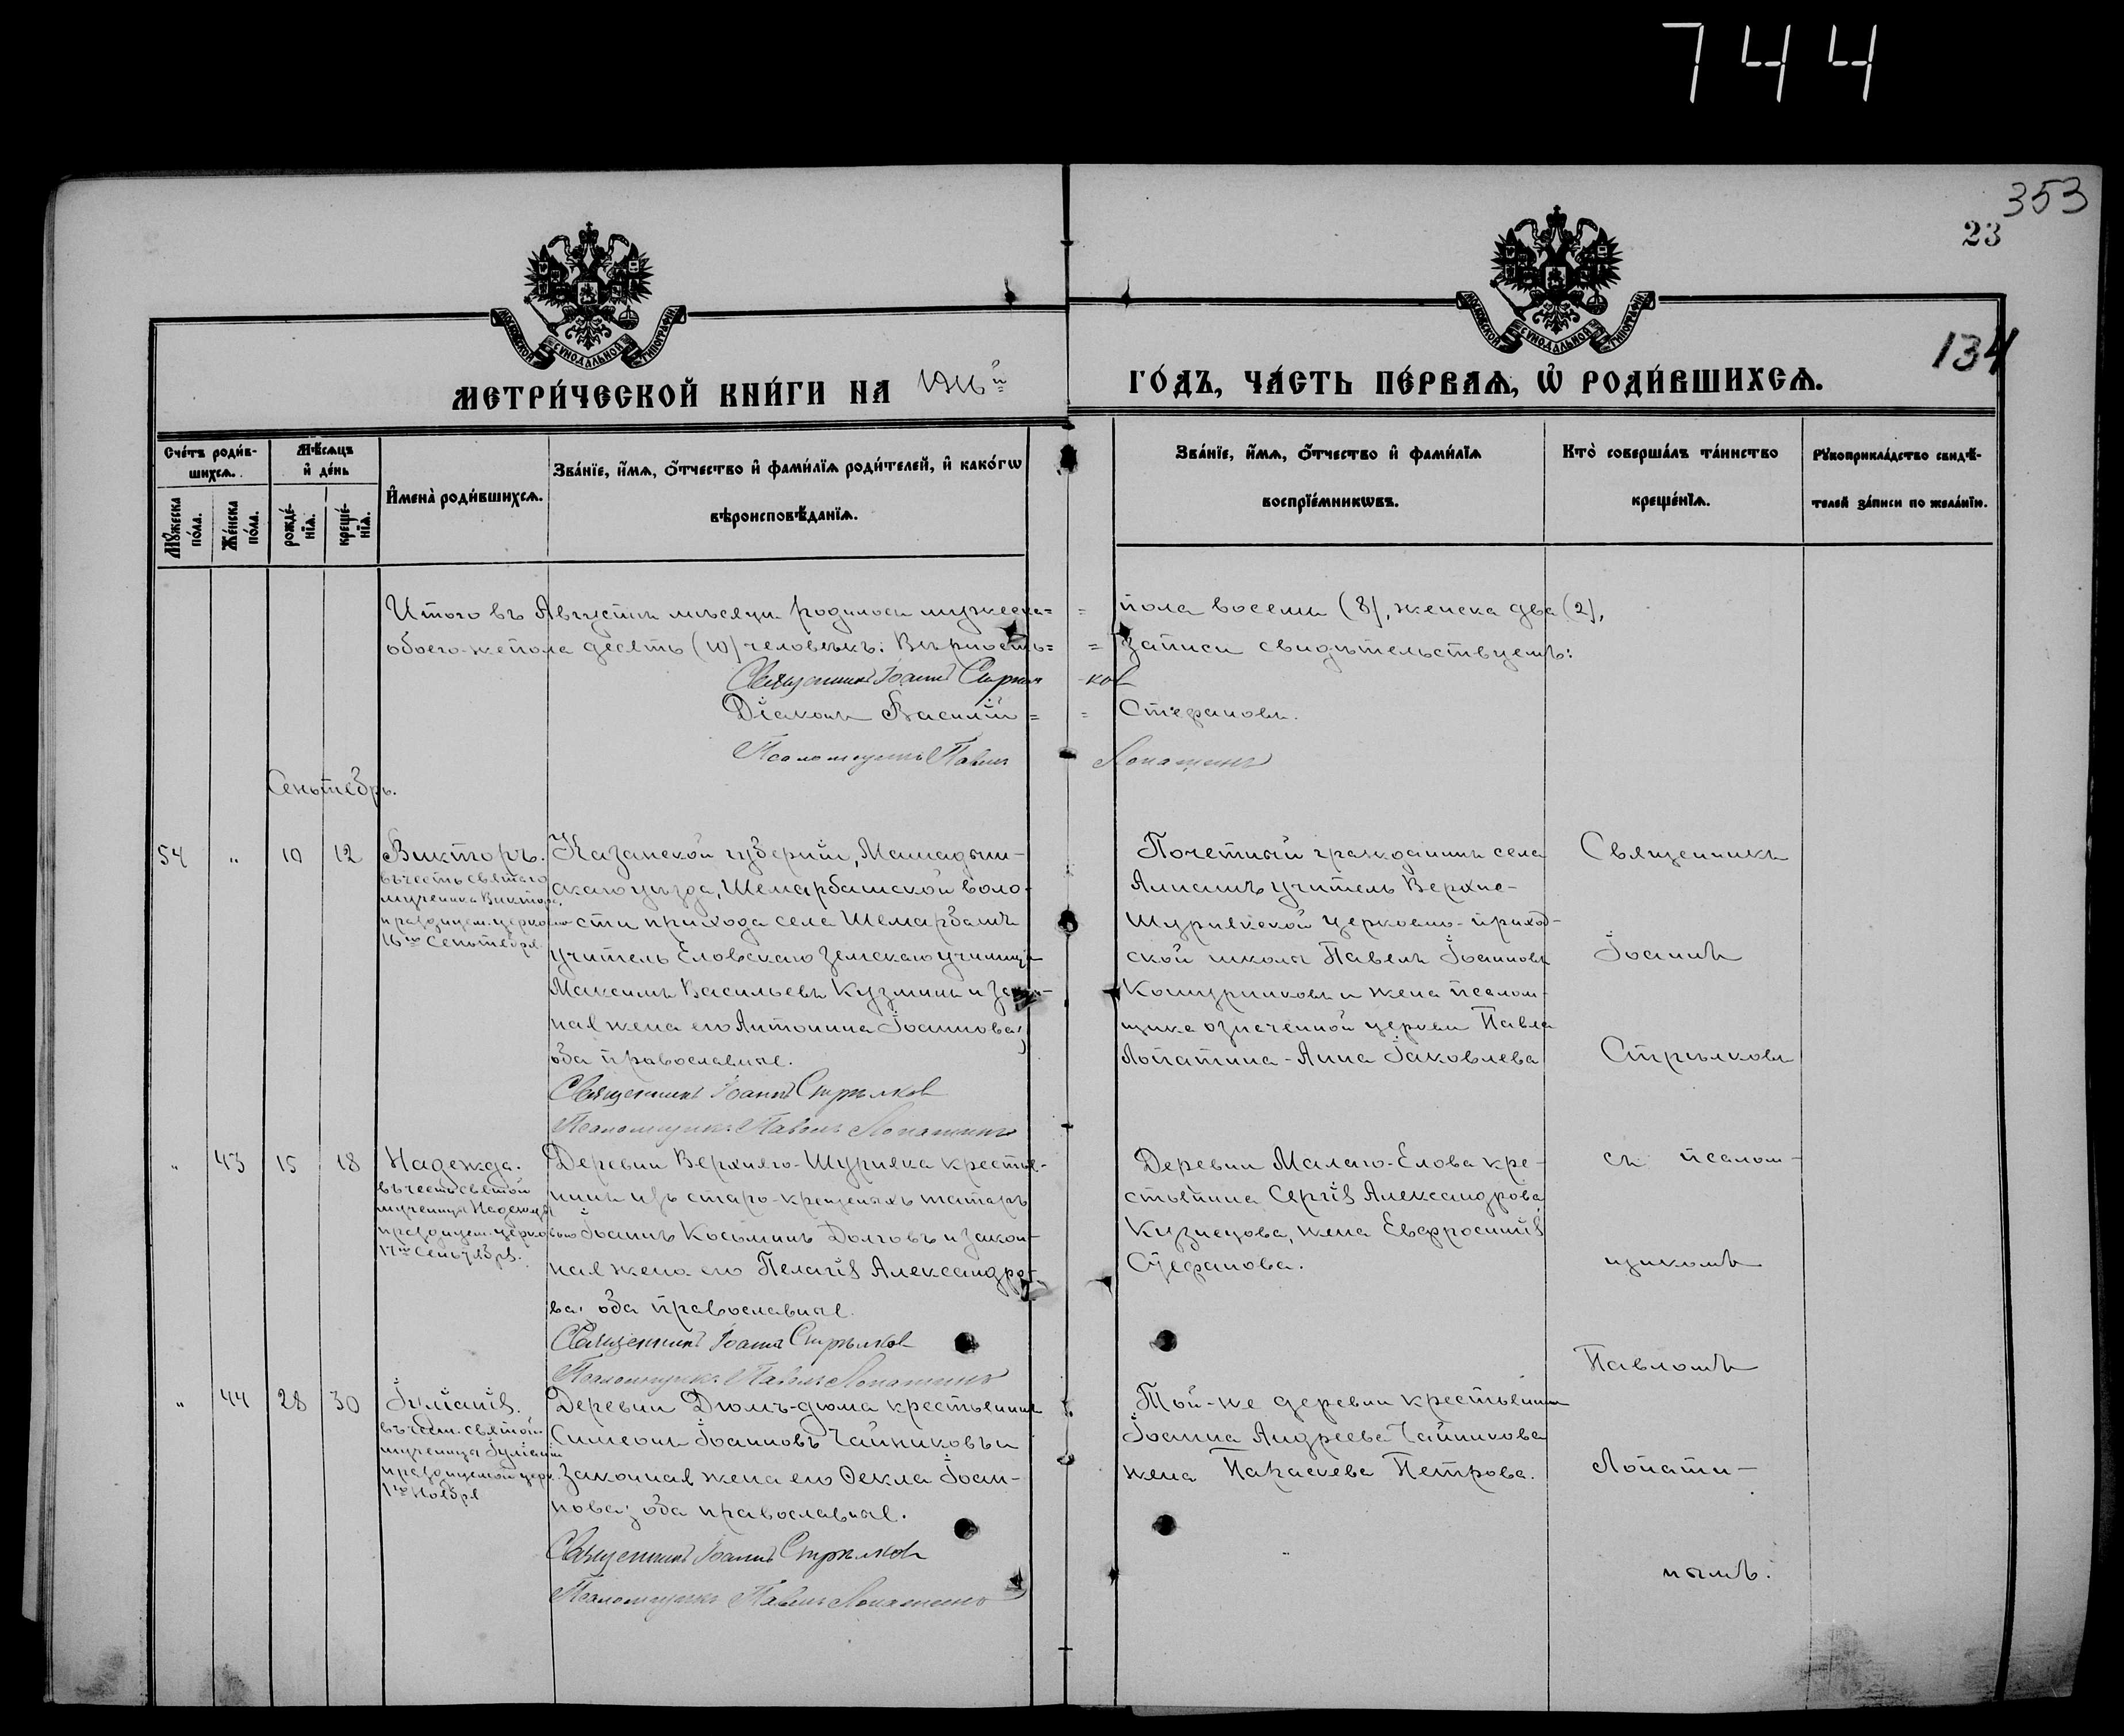 744
353
23
134
МОСКОВСКОЙ СѴНОДАЛЬНОЙ ТИПОГРАФІИ
МОСКОВСКОЙ СѴНОДАЛЬНОЙ ТИПОГРАФІИ
МЕТРИ́ЧЕСКОЙ КНИ́ГИ НА 1916й ГО́ДЪ, ЧА́СТЬ ПЕ́РВАѦ, Ѡ҆ РОДИ́ВШИХСѦ.
Сче́тъ роди́в-
шихсѧ.
Мꙋ́жеска по́ла.
Же́нска по́ла.
Мѣ́сѧцъ
и҆ де́нь
рожде́-
нїѧ.
креще́-
нїѧ.
И҆мена̀ роди́вшихсѧ.
Зва́нїе, и҆́мѧ, ѻ҆́тчество и҆ фами́лїѧ роди́телей, и҆ како́гѡ
вѣроисповѣ́данїѧ.
Зва́нїе, и҆́мѧ, ѻ҆́тчество и҆ фами́лїѧ
воспрїе́мникѡвъ.
Кто̀ соверша́лъ та́инство
креще́нїѧ.
Рꙋкоприкла́дство свидѣ́-
телей за́писи по жела́нїю.
Итого въ Августѣ мѣсяцѣ родилось мужеска= = пола восемь (8), женска два (2),
обоего-же пола десять (10) человѣкъ: Вѣрность= = записи свидѣтельствуемъ:
Священникъ Іоаннъ Стрѣл-ков
Діаконъ Василій = = Стефановъ.
Псаломщикъ Павелъ Лопатинъ
Сентябрь.
54 " 10 12
Викторъ.
въ честь святаго
мученика Виктора,
празднуем. церковію
16го Сентября.
Казанской губерніи, Мамадыш-
скаго уѣзда, Шемарбашской воло-
сти прихода села Шемарбашъ
учитель Еловскаго земскаго училища
Максимъ Васильевъ Кузминъ и закон-
ная жена его Антонина Іоаннова;
оба православные.
Священникъ Іоаннъ Стрѣлков
Псаломщикъ Павелъ Лопатинъ
Почетный гражданинъ села
учитель Верхне-
Шурнякской церковно-приход-
ской школы Павелъ Іоанновъ
и жена псалом-
щика означенной церкви Павла
Лопатина - Анна Іаковлева
Священникъ
Іоаннъ
Стрѣлковъ
" 43 15 18
Надежда.
въ честь святой
мученицы Надежды
празднуем. церковію
17го Сентября.
Деревни Верхняго-Шурняка крестья-
нинъ изъ старо-крещеныхъ татаръ
Іоаннъ Косьминъ Долговъ и закон-
ная жена его Пелагія Александро-
ва: оба православные.
Священникъ Іоаннъ Стрѣлков
Псаломщикъ Павелъ Лопатинъ
Деревни Малаго-Елова кре-
стьянина Сергія Александрова
Кузнецова, жена Евфросинія
Стефанова.
съ псалом-
щикомъ
Павломъ
" 44 28 30
Іуліанія.
въ честь святой
мученицы Іуліаніи
празднуемой церк.
1го Ноября
Деревни Дюмъ-дюма крестьянинъ
Симеонъ Іоанновъ Чайниковъ и
законная жена его Ѳекла Іоан-
нова: оба православные.
Священникъ Іоаннъ Стрѣлков
Псаломщикъ Павелъ Лопатинъ
Той-же деревни крестьянина
Іоанна Андреева Чайникова
жена Параскева Петрова.
Лопати-
нымъ.